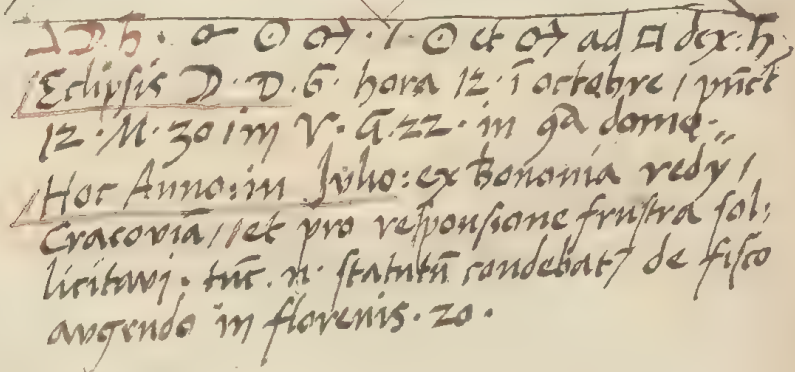 ☽ ♄ · ☍ ☉ ♂ · 1 · ☉ et ♂ ad □ dex: ♄
Eclipsis ☽ · D · 6 · hora 12 · ī octobre / pūct
12 · M · 30 im ♈ · G̃ · 22 · in 9ā domo ·
Hoc Anno: in Julio: ex Bononia redÿ /
Cracoviā / et pro responsione frustra sol,
licitavi · tūc · n · statutū condebat² de fisco
augendo in florenis · 20 ·